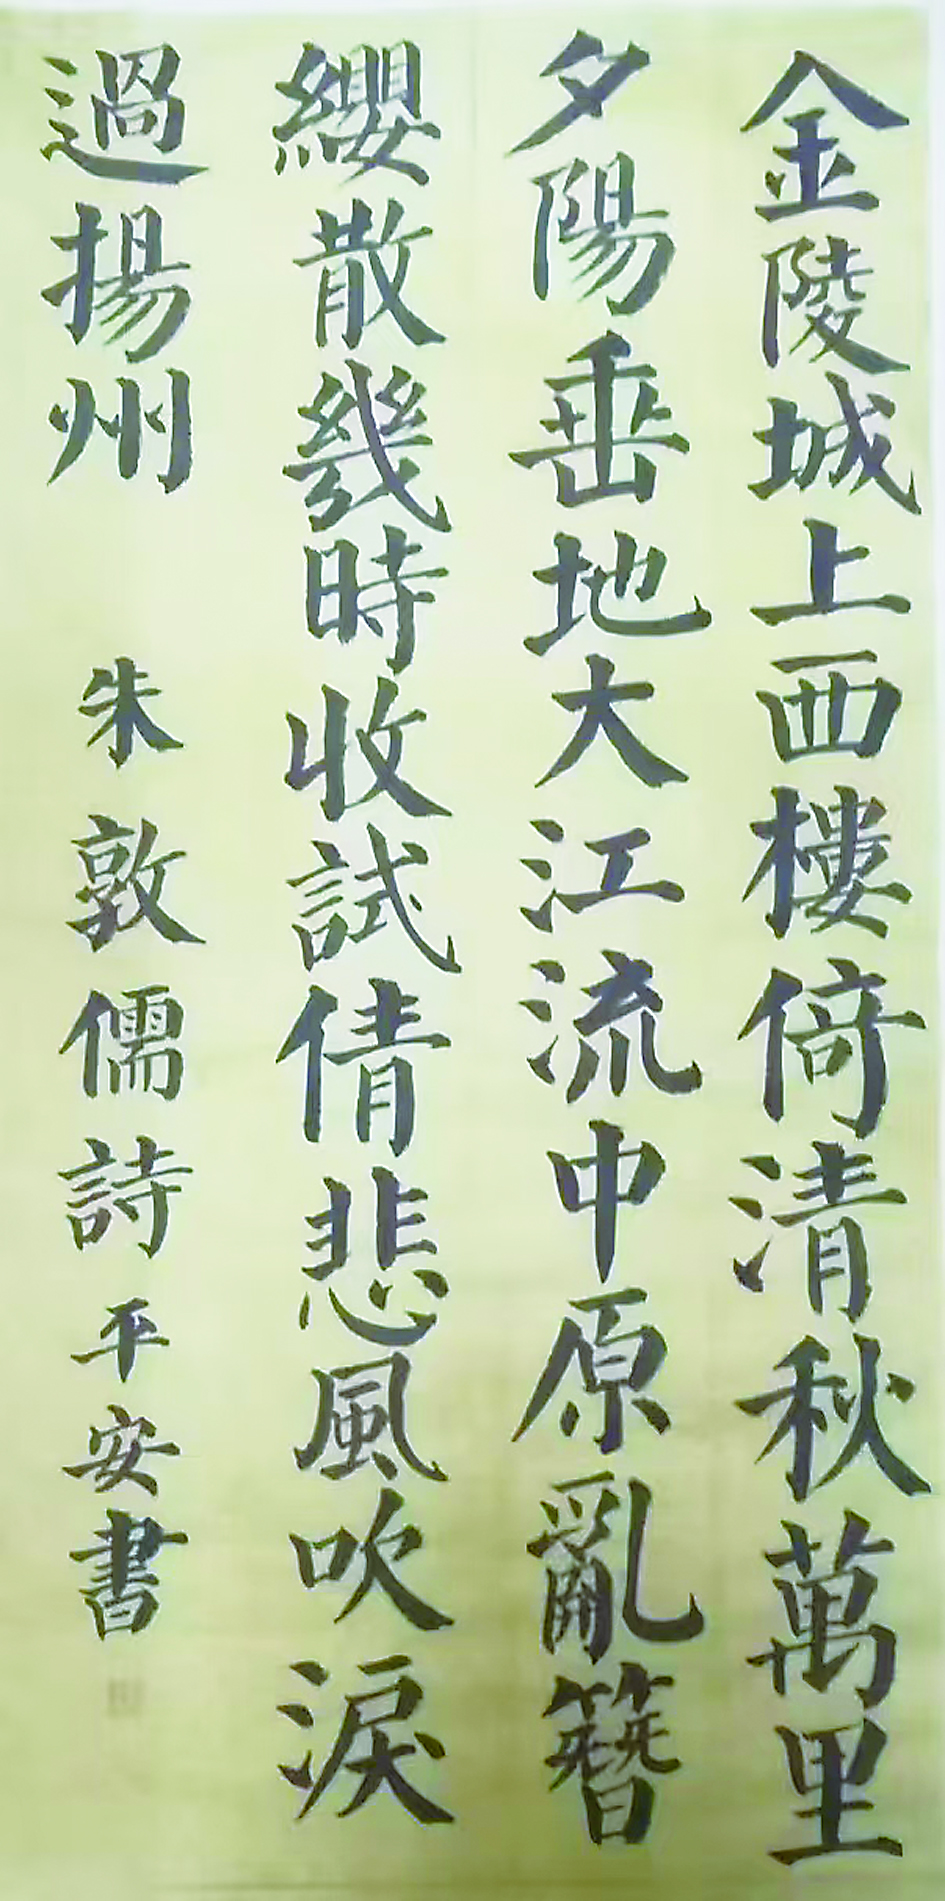 金陵城上西樓倚清秋萬里
夕陽垂地大江流中原亂簪
纓散幾時收試倩悲風吹淚
過揚州 朱敦儒詩 平安書